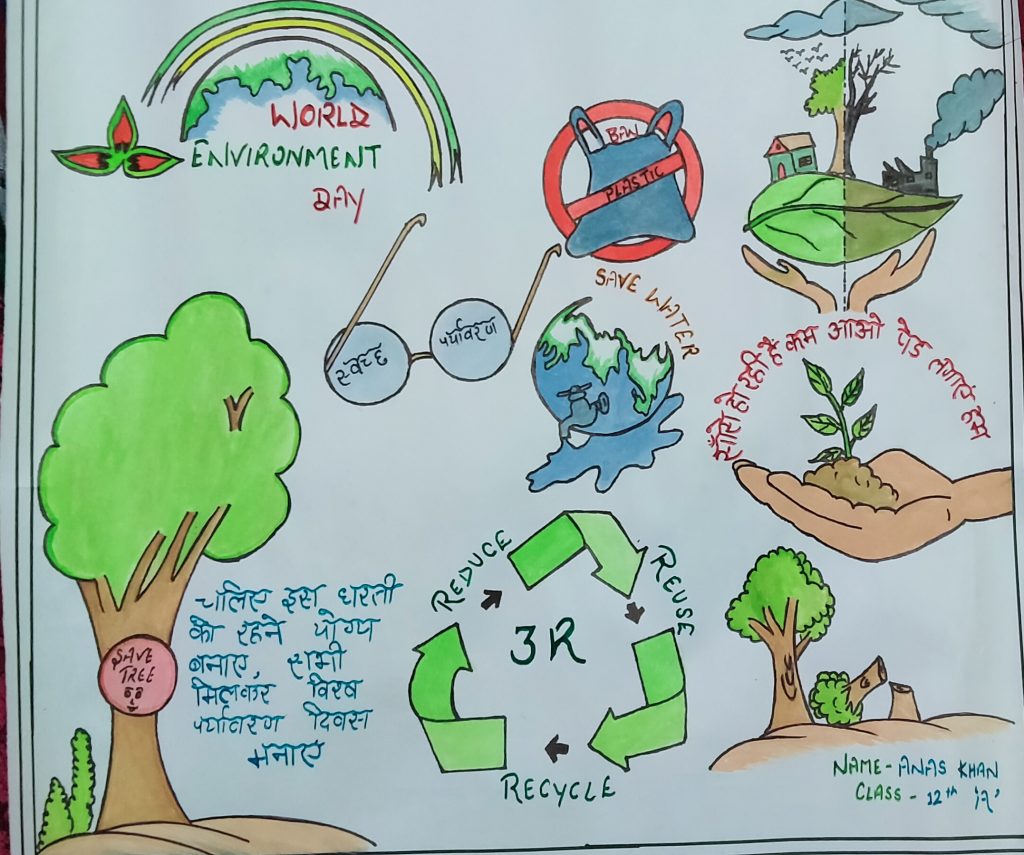 WORLD
ENVIRONMENT
DAY
BAN
PLASTIC
SAVE WATER
स्वच्छ
पर्यावरण
साँसे हो रही है कम आओ पेड लगाएं हम
SAVE
TREE
चलिए इस धरती
को रहने योग्य
बनाए, सभी
मिलकर विश्व
पर्यावरण दिवस
मनाए
REDUCE
REUSE
3R
RECYCLE
NAME - ANAS KHAN
CLASS - 12th